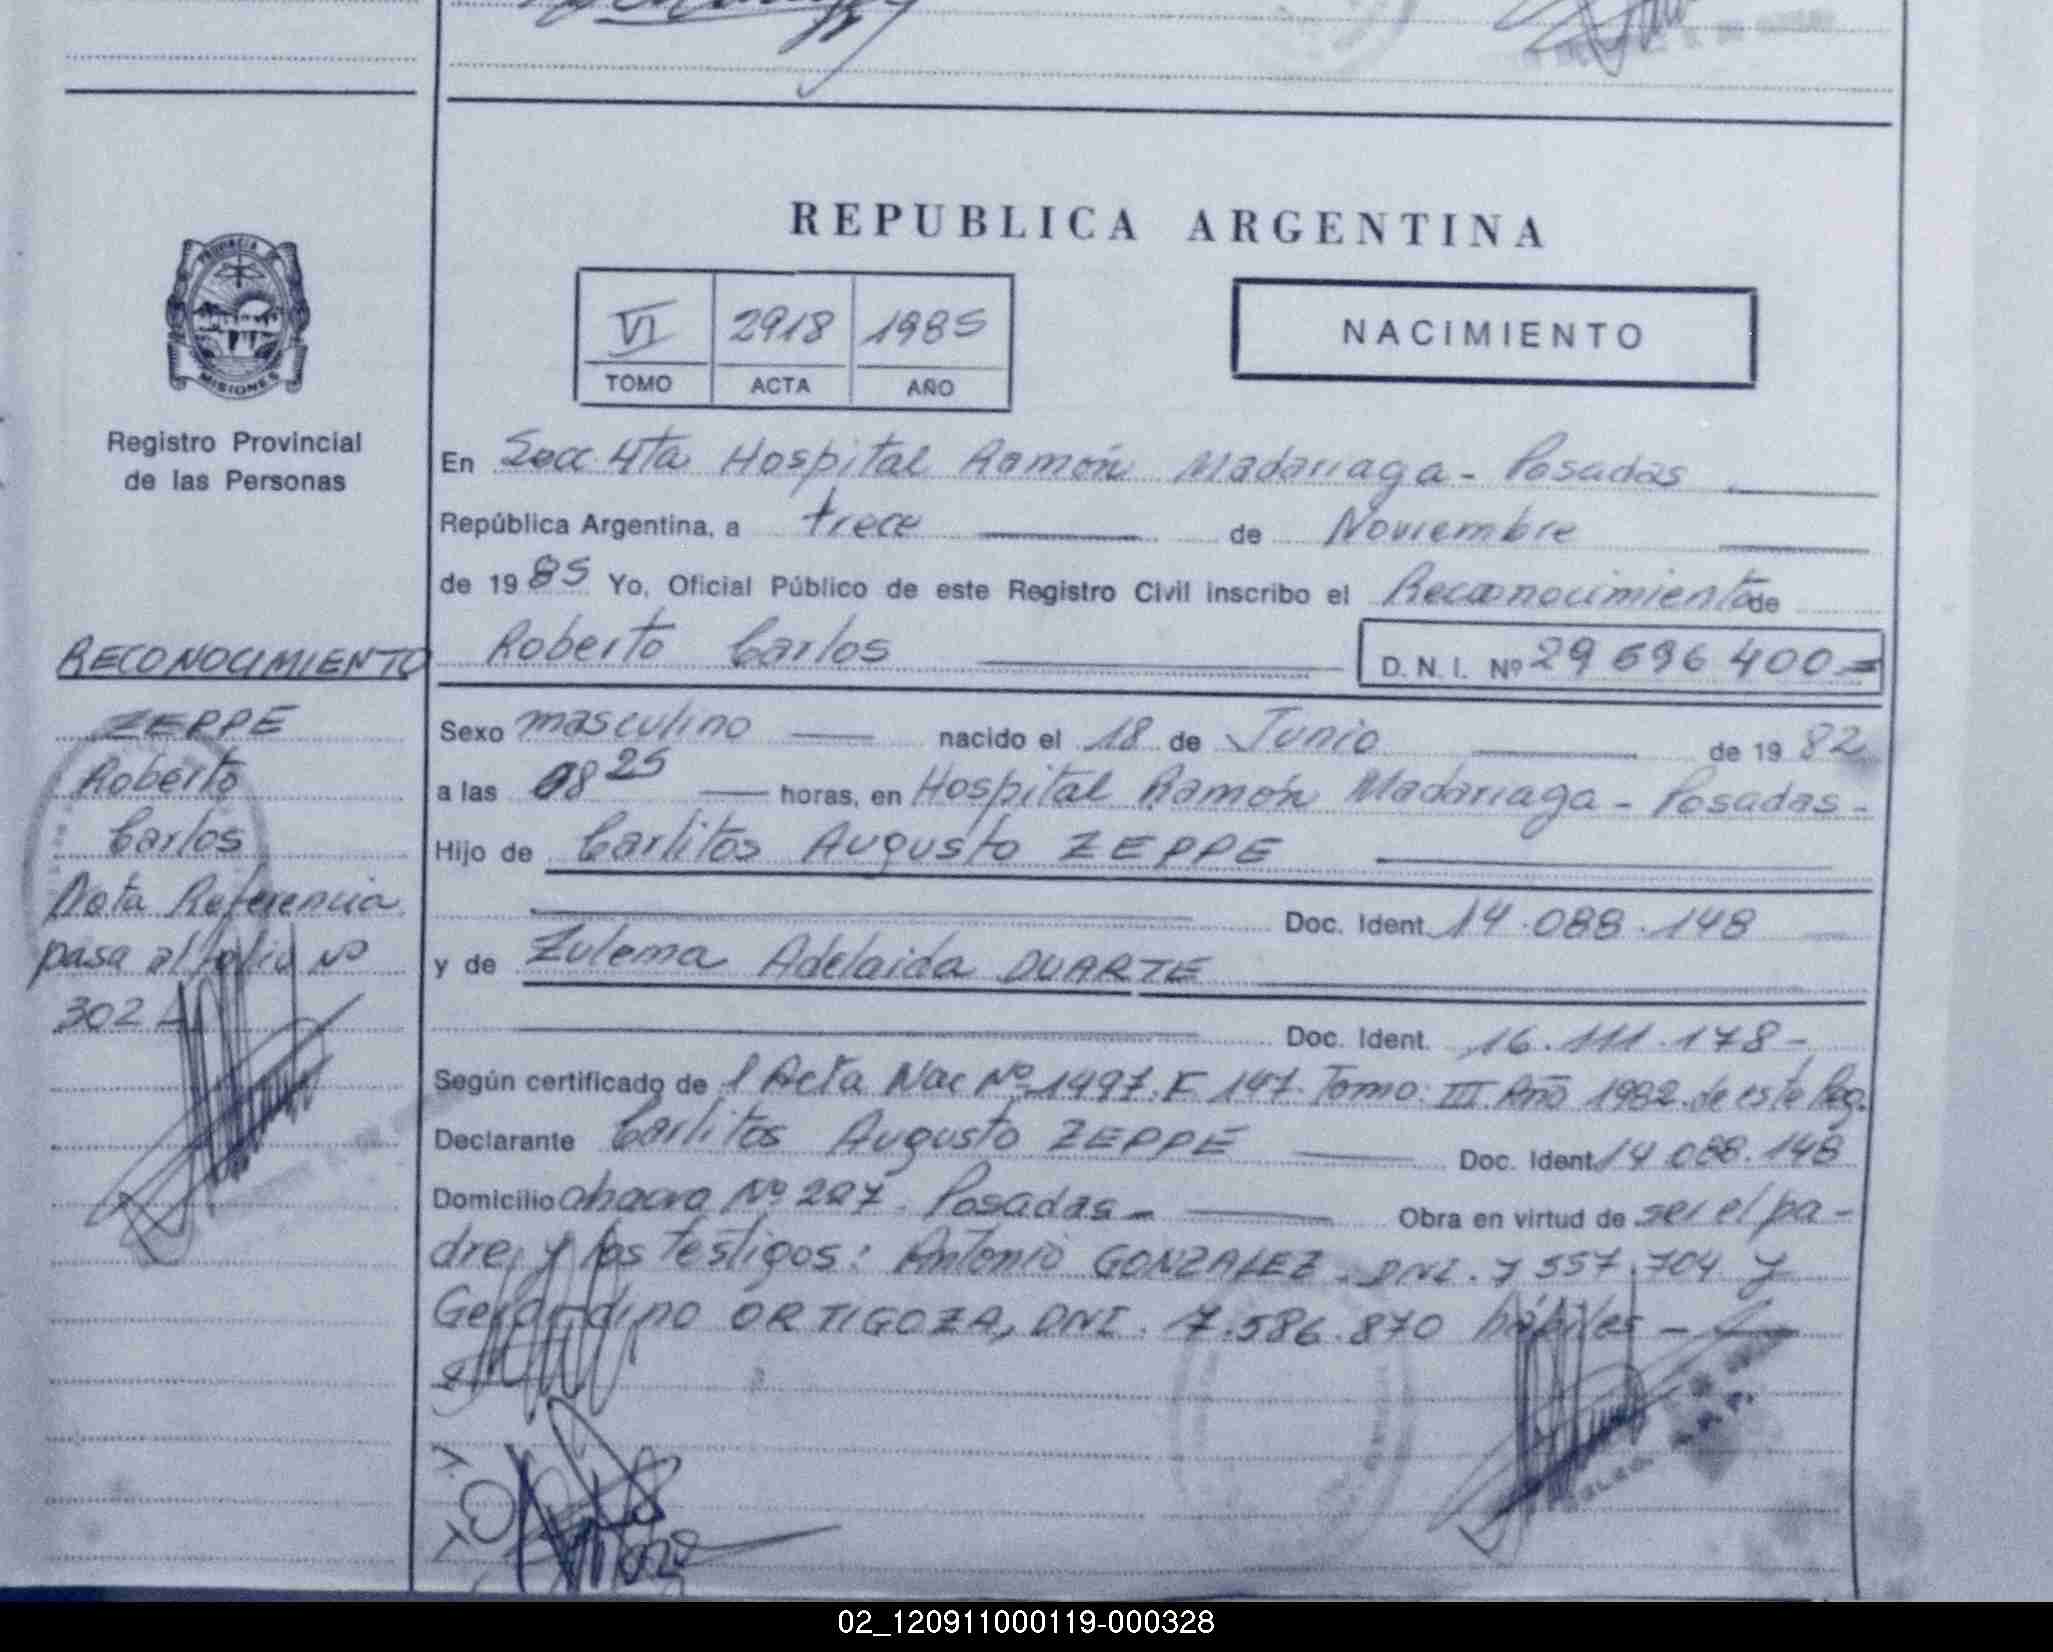 REPUBLICA ARGENTINA
VI 2918 1985
TOMO ACTA AÑO
NACIMIENTO
PROVINCIA DE
MISIONES
Registro Provincial
de las Personas
En Secc 4ta Hospital Ramón Madariaga - Posadas
República Argentina, a trece de Noviembre
de 1985 Yo, Oficial Público de este Registro Civil inscribo el Reconocimiento de
Roberto Carlos D.N.I. Nº 29 696 400=
Sexo masculino nacido el 18 de Junio de 1982
a las 08 25 horas, en Hospital Ramón Madariaga - Posadas -
Hijo de Carlitos Augusto ZEPPE
Doc. Ident. 14.088.148
y de Zulema Adelaida DUARTE
Doc. Ident. 16.111.178-
Según certificado de l Acta Nac Nº 1497. F 147. Tomo: III Año 1982 de este Reg.
Declarante Carlitos Augusto ZEPPE Doc. Ident. 14 088.148
Domicilio chacra Nº 227. Posadas - Obra en virtud de ser el pa-
dre, y los testigos: Antonio GONZALEZ. DNI. 7 557.704 y
ORTIGOZA, DNI. 7.586.870 hábiles -
RECONOCIMIENTO
ZEPPE
Roberto
Carlos
Nota Referencia
pasa al folio Nº
302
02_120911000119-000328